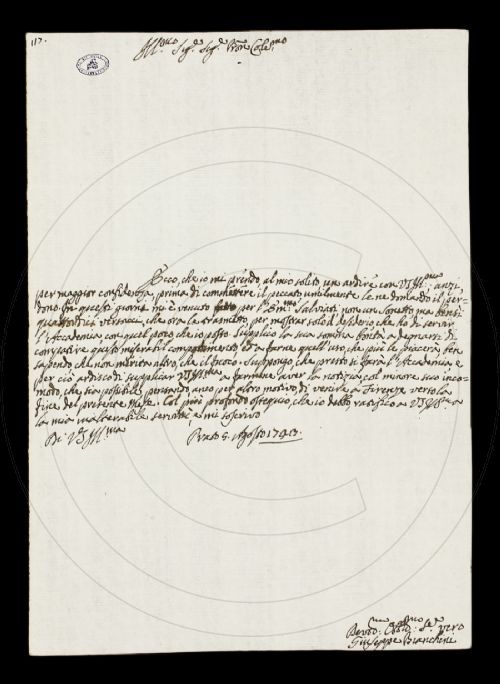 117.
Ill.mo Sig.e Sig.e Pron Col.mo
Ecco, che io mi prendo, al mio solito un ardire con VS Ill.ma anzi,
per maggior confidenza, prima di commettere il peccato umilmente le ne dimando il per-
dono. In questi giorni mi è venuto fatto per l'Em.mo Salviati non un Sonetto ma
quattordici versacci, che ora le trasmetto, per mostrar solo il desiderio, che ho di servir
l'Accademia con quel poco che io posso. Supplico la sua somma bontà a degnarsi di
compatire questo miserabil componimento ed a farne quell'uso, che più le piacerà, ben
sapendo che non merita altro, che il fuoco. Suppongo, che presto si farà l'Accademia, e
per ciò ardisco di supplicar VS Ill.ma a farmene aver la notizia col minore suo inco-
modo, che sia possibile, premendomi per altro motivo di venire a Firenze verso la
fine del presente Mese. Col più profondo ossequio, che io debbo ratifico a VS Ill.ma
la mia inalterabile servitù, e mi soscrivo
Di VS Ill.ma
Prato 5. Agosto 1723.
Devot. Obblig. Se.re vero
Giuseppe Bianchini